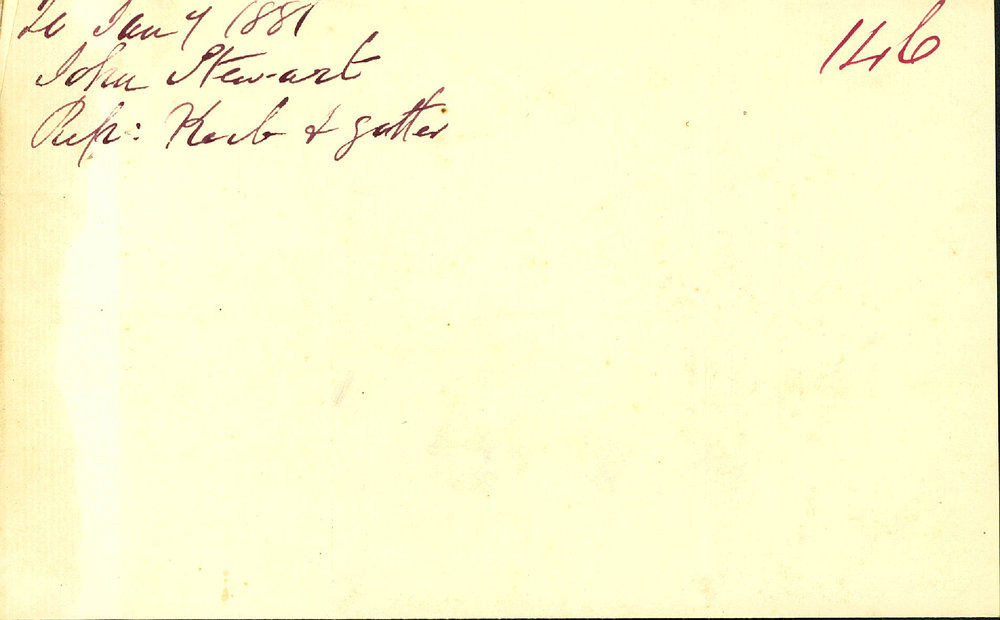 20 Jany 1881
John Stewart
Resp: Kerb & gutter
146